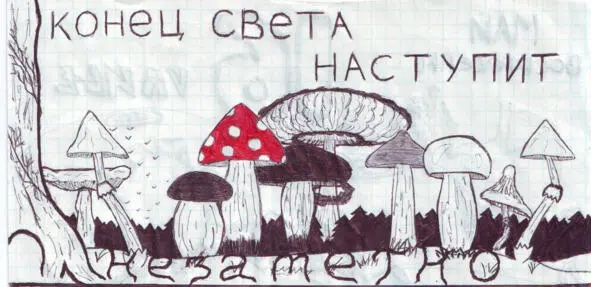 КОНЕЦ СВЕТА
НАСТУПИТ
незаметно